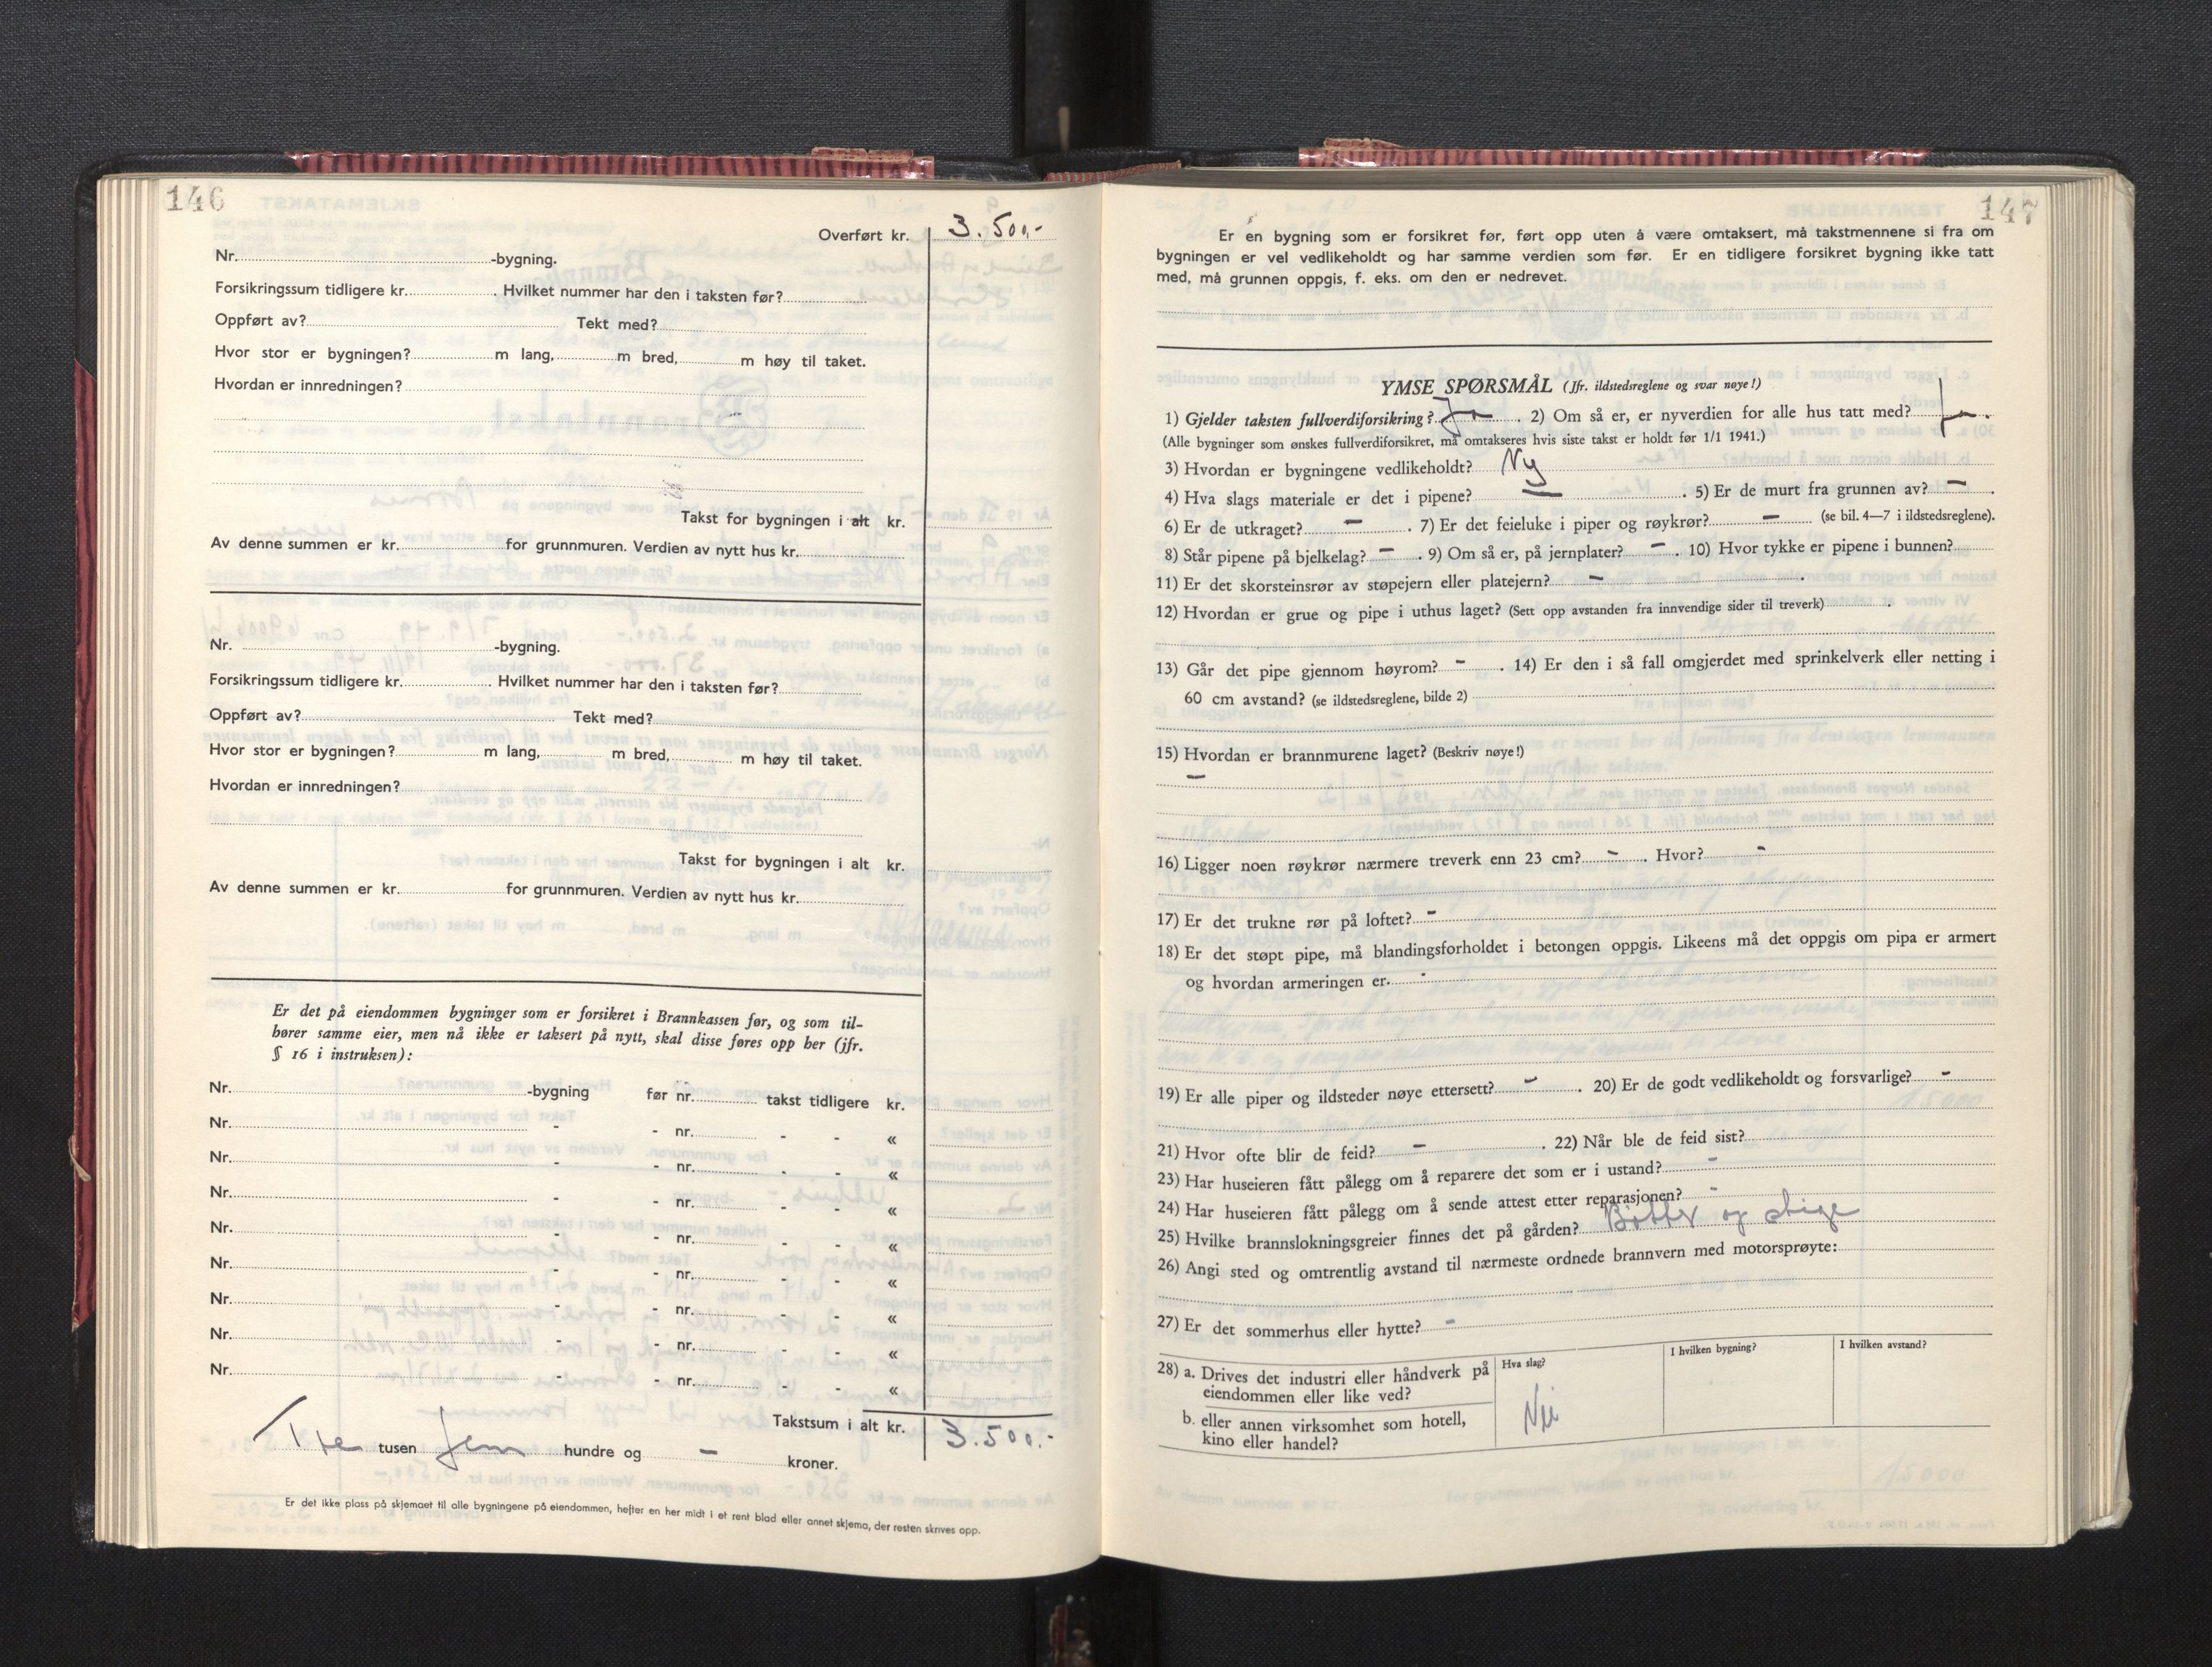 146
Overført kr. 3.500,-
Nr. -bygning.
Forsikringssum tidligere kr. . Hvilket nummer har den i taksten før?
Oppført av? Tekt med?
Hvor stor er bygningen? m lang, m bred, m høy til taket.
Hvordan er innredningen?
Takst for bygningen i alt kr.
Av denne summen er kr. for grunnmuren. Verdien av nytt hus kr.
Nr. -bygning.
Forsikringssum tidligere kr. . Hvilket nummer har den i taksten før?
Oppført av? Tekt med?
Hvor stor er bygningen? m lang, m bred, m høy til taket.
Hvordan er innredningen?
Takst for bygningen i alt kr.
Av denne summen er kr. for grunnmuren. Verdien av nytt hus kr.
Er det på eiendommen bygninger som er forsikret i Brannkassen før, og som til-
hører samme eier, men nå ikke er taksert på nytt, skal disse føres opp her (jfr.
§ 16 i instruksen):
Nr. -bygning før nr. takst tidligere kr.
Nr. - - nr. - - «
Nr. - - nr. - - «
Nr. - - nr. - - «
Nr. - - nr. - - «
Nr. - - nr. - - «
Nr. - - nr. - - «
Nr. - - nr. - - «
Nr. - - nr. - - «
Takstsum i alt kr. 3.500.-
Tre tusen fem hundre og - kroner.
Er det ikke plass på skjemaet til alle bygningene på eiendommen, hefter en her midt i et rent blad eller annet skjema, der resten skrives opp.
147
Er en bygning som er forsikret før, ført opp uten å være omtaksert, må takstmennene si fra om
bygningen er vel vedlikeholdt og har samme verdien som før. Er en tidligere forsikret bygning ikke tatt
med, må grunnen oppgis, f. eks. om den er nedrevet.
YMSE SPØRSMÅL (Jfr. ildstedsreglene og svar nøye!)
1) Gjelder taksten fullverdiforsikring? Ja . 2) Om så er, er nyverdien for alle hus tatt med? Ja.
(Alle bygninger som ønskes fullverdiforsikret, må omtakseres hvis siste takst er holdt før 1/1 1941.)
3) Hvordan er bygningene vedlikeholdt? Ny
4) Hva slags materiale er det i pipene? — . 5) Er de murt fra grunnen av? - .
6) Er de utkraget? - . 7) Er det feieluke i piper og røykrør? - (se bil. 4—7 i ildstedsreglene).
8) Står pipene på bjelkelag? - . 9) Om så er, på jernplater? - . 10) Hvor tykke er pipene i bunnen?
11) Er det skorsteinsrør av støpejern eller platejern? - .
12) Hvordan er grue og pipe i uthus laget? (Sett opp avstanden fra innvendige sider til treverk) .
13) Går det pipe gjennom høyrom? - . 14) Er den i så fall omgjerdet med sprinkelverk eller netting i
60 cm avstand? (se ildstedsreglene, bilde 2)
15) Hvordan er brannmurene laget? (Beskriv nøye!)
-
16) Ligger noen røykrør nærmere treverk enn 23 cm? - . Hvor? -
17) Er det trukne rør på loftet? -
18) Er det støpt pipe, må blandingsforholdet i betongen oppgis. Likeens må det oppgis om pipa er armert
og hvordan armeringen er. -
19) Er alle piper og ildsteder nøye ettersett? - . 20) Er de godt vedlikeholdt og forsvarlige? -
21) Hvor ofte blir de feid? - . 22) Når ble de feid sist?
23) Har huseieren fått pålegg om å reparere det som er i ustand? -
24) Har huseieren fått pålegg om å sende attest etter reparasjonen? -
25) Hvilke brannslokningsgreier finnes det på gården? Bøtter og stige
26) Angi sted og omtrentlig avstand til nærmeste ordnede brannvern med motorsprøyte:
27) Er det sommerhus eller hytte? -
28) a. Drives det industri eller håndverk på
eiendommen eller like ved?
b. eller annen virksomhet som hotell,
kino eller handel?
Hva slag?
Nei
I hvilken bygning?
I hvilken avstand?